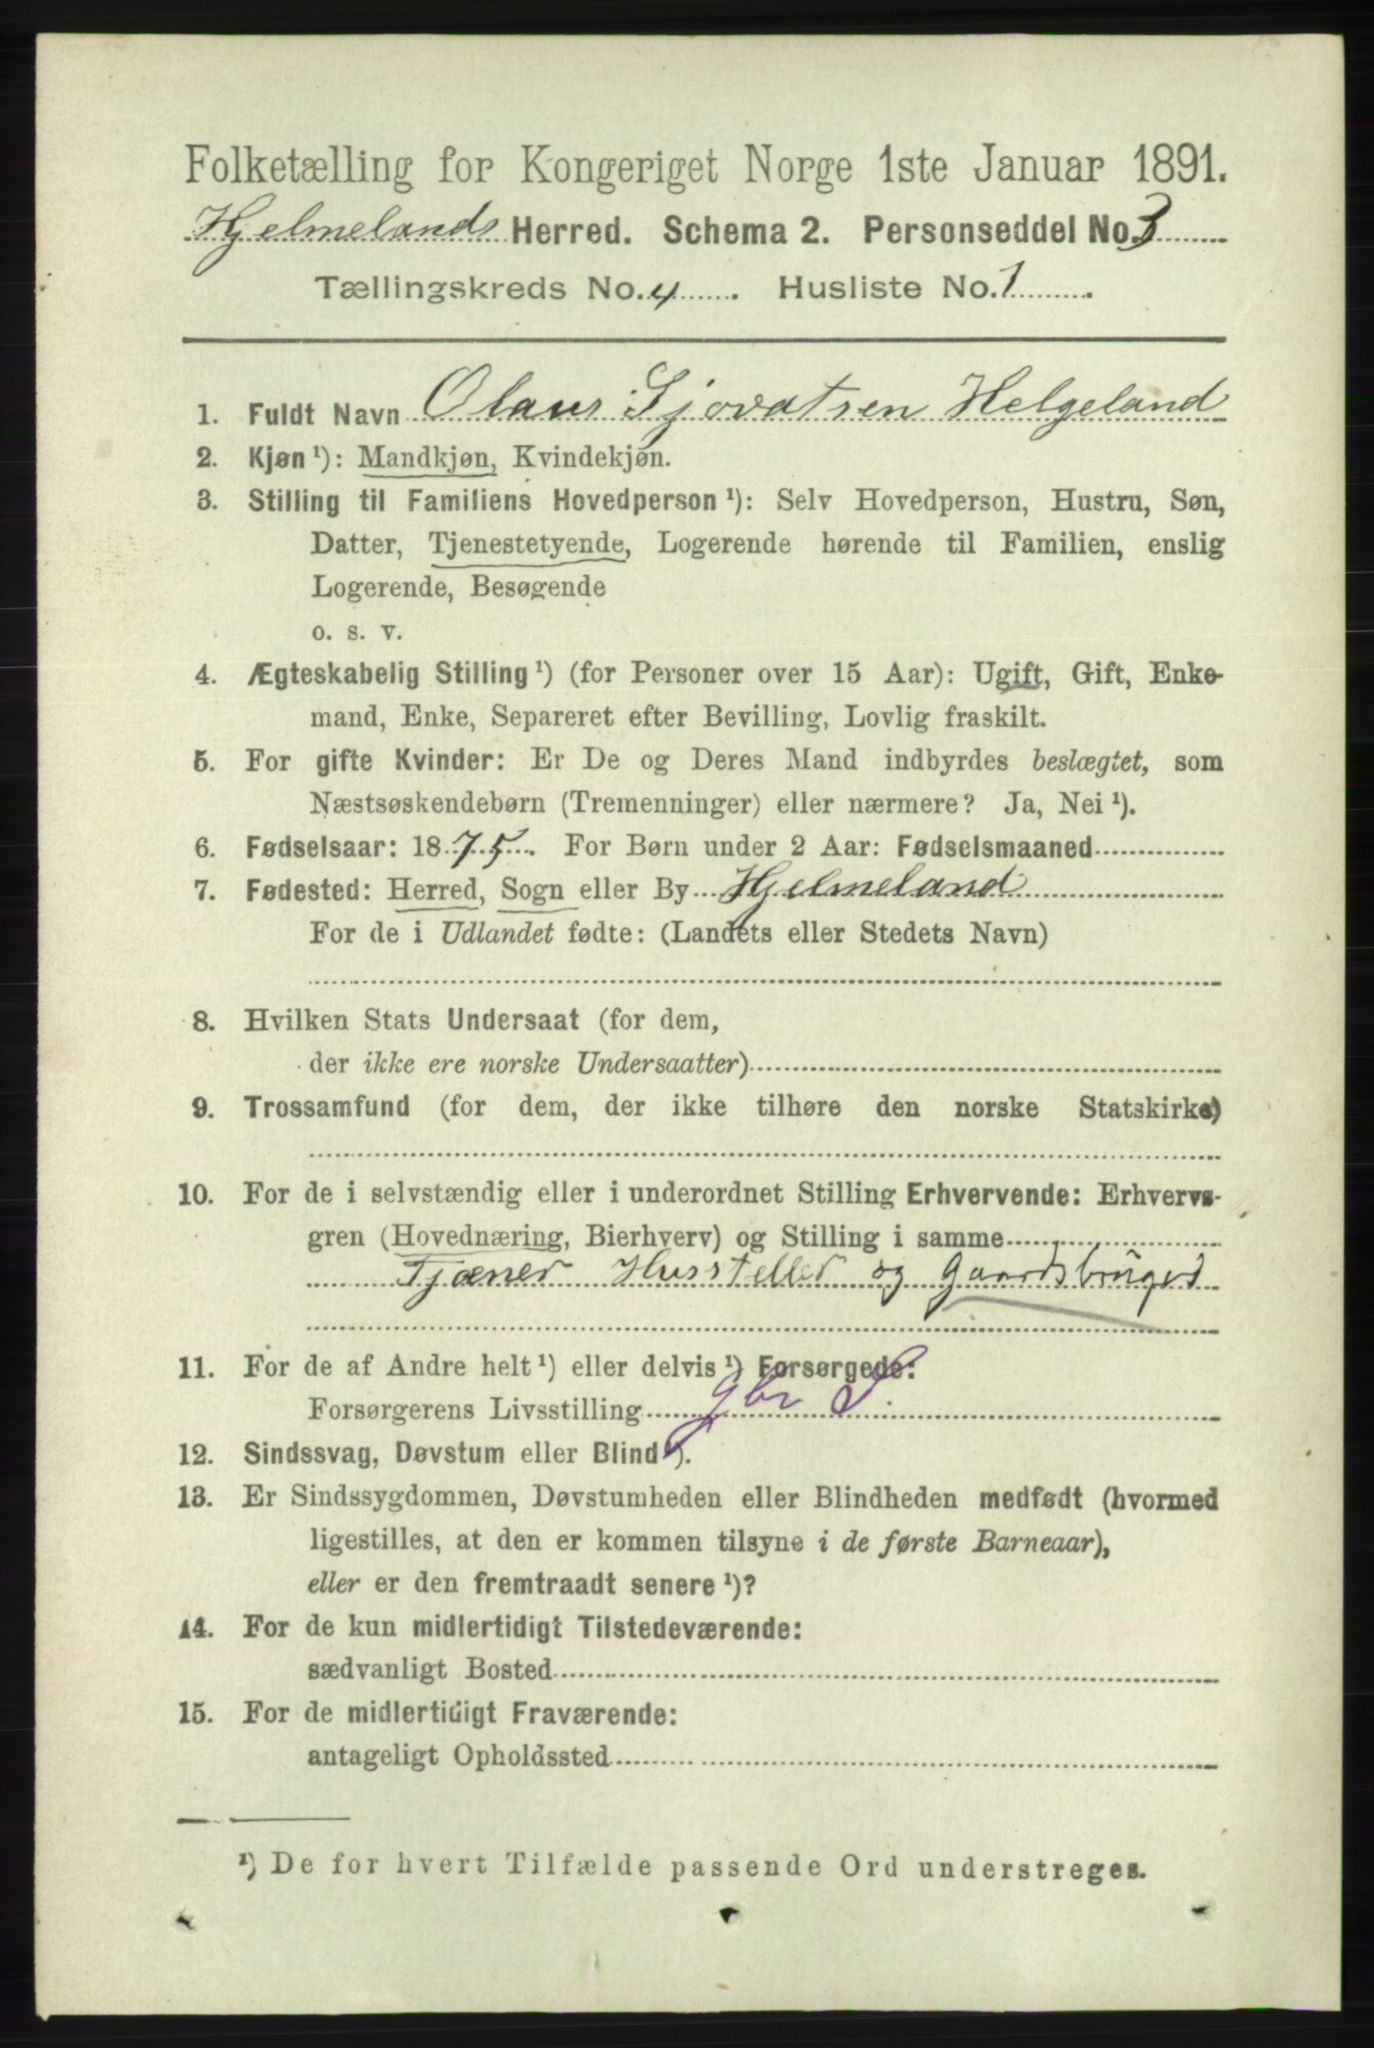 Folketælling for Kongeriget Norge 1ste Januar 1891.
Hjelmelands Herred. Schema 2. Personseddel No. 3
Tællingskreds No. 4. Husliste No. 1.
1. Fuldt Navn Olaus Sjovatsen Helgeland
2. Kjøn ¹): Mandkjøn, Kvindekjøn.
3. Stilling til Familiens Hovedperson ¹): Selv Hovedperson, Hustru, Søn,
Datter, Tjenestetyende, Logerende hørende til Familien, enslig
Logerende, Besøgende
o. s. v.
4. Ægteskabelig Stilling ¹) (for Personer over 15 Aar): Ugift, Gift, Enke-
mand, Enke, Separeret efter Bevilling, Lovlig fraskilt.
5. For gifte Kvinder: Er De og Deres Mand indbyrdes beslægtet, som
Næstsøskendebørn (Tremenninger) eller nærmere? Ja, Nei ¹).
6. Fødselsaar: 1875. For Børn under 2 Aar: Fødselsmaaned
7. Fødested: Herred, Sogn eller By Hjelmeland
For de i Udlandet fødte: (Landets eller Stedets Navn)
8. Hvilken Stats Undersaat (for dem,
der ikke ere norske Undersaatter)
9. Trossamfund (for dem, der ikke tilhøre den norske Statskirke)
10. For de i selvstændig eller i underordnet Stilling Erhvervende: Erhvervs-
gren (Hovednæring, Bierhverv) og Stilling i samme
Tjæner Husstellet og Gaardsbruget
11. For de af Andre helt ¹) eller delvis ¹) Forsørgede:
Forsørgerens Livsstilling gbr S.
12. Sindssvag, Døvstum eller Blind ¹).
13. Er Sindssygdommen, Døvstumheden eller Blindheden medfødt (hvormed
ligestilles, at den er kommen tilsyne i de første Barneaar),
eller er den fremtraadt senere ¹)?
14. For de kun midlertidigt Tilstedeværende:
sædvanligt Bosted
15. For de midlertidigt Fraværende:
antageligt Opholdssted
¹) De for hvert Tilfælde passende Ord understreges.